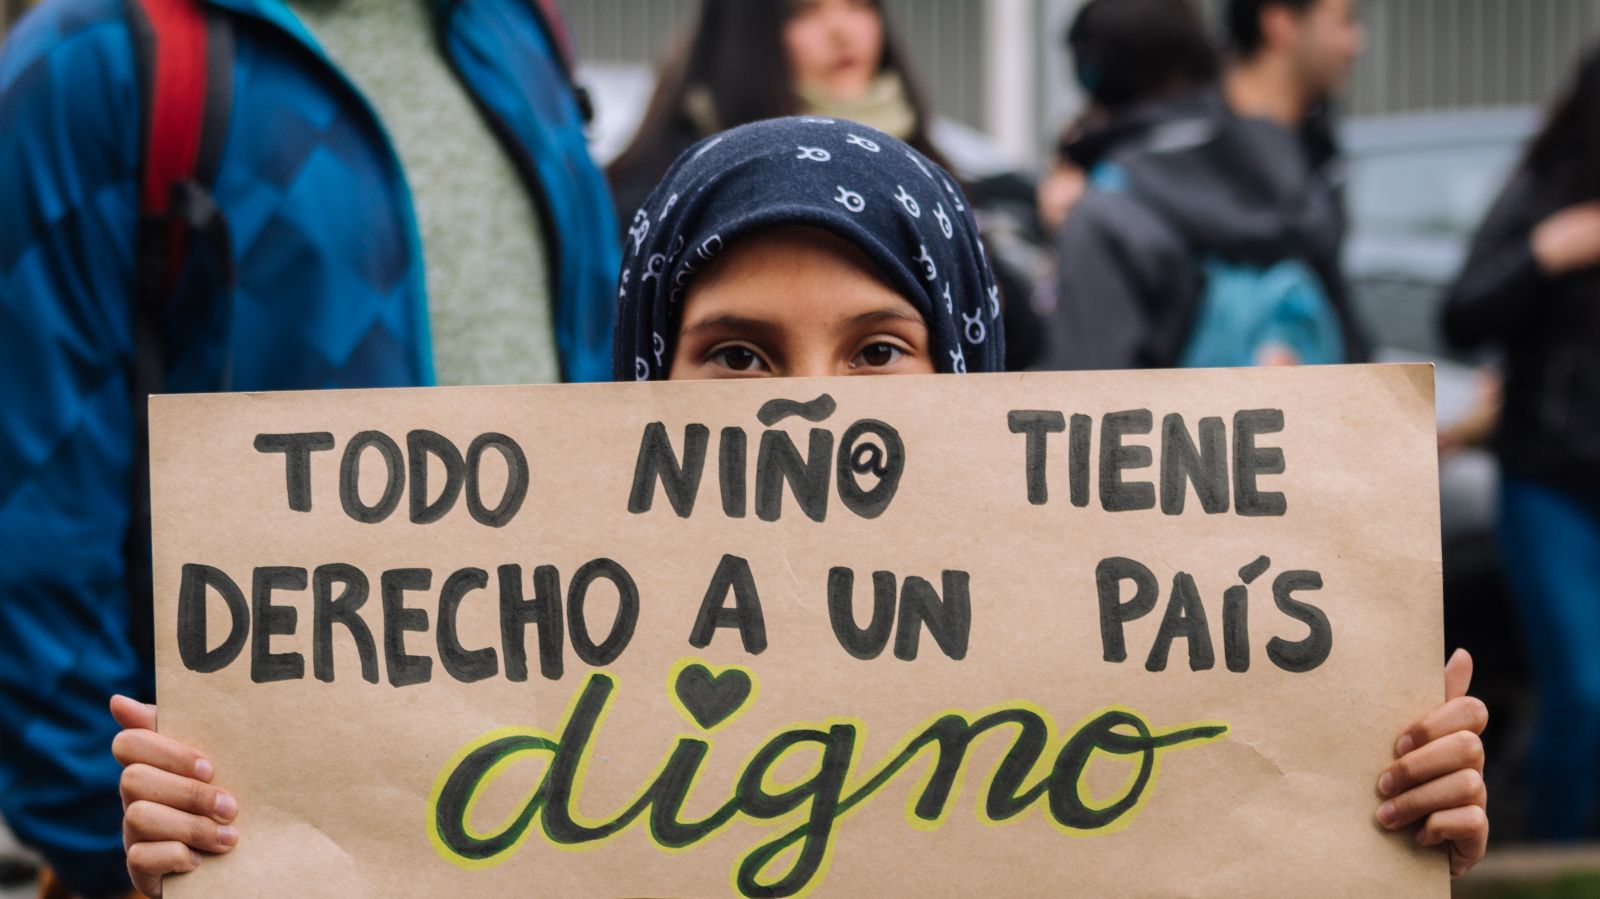 TODO NIÑ@ TIENE
DERECHO A UN PAÍS
digno